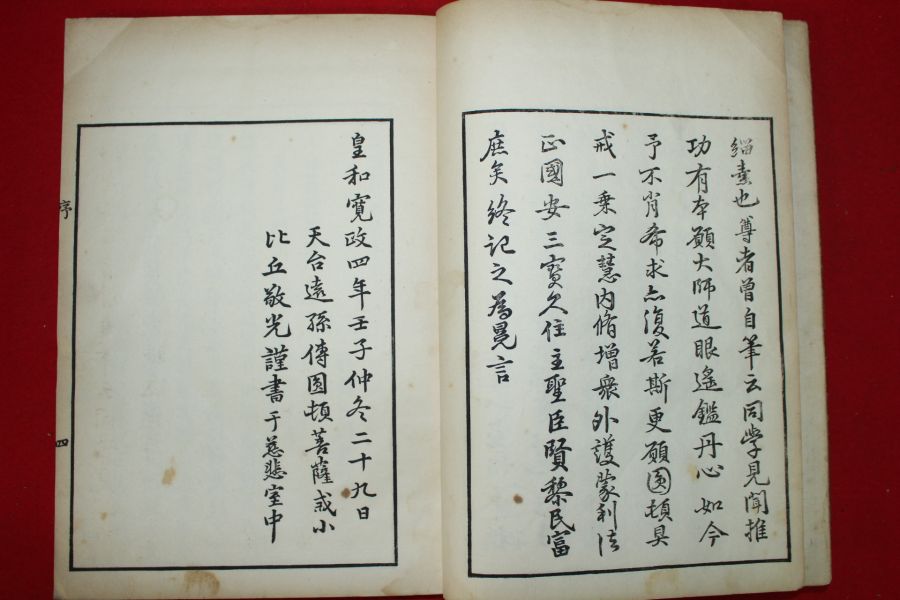 緇素也尊者曽自筆云同学見聞推
功有本願大師道眼遙鑑丹心如今
予不肖希求亦復若斯更願圓頓具
戒一乗定慧内脩増衆外護蒙利法
正國安三寳久住主聖臣賢黎民富
庶矣終記之為冕言
皇和寛政四年壬子仲冬二十九日
天台遠孫傳圓頓菩薩戒小
比丘敬光謹書于慈悲室中
序
四